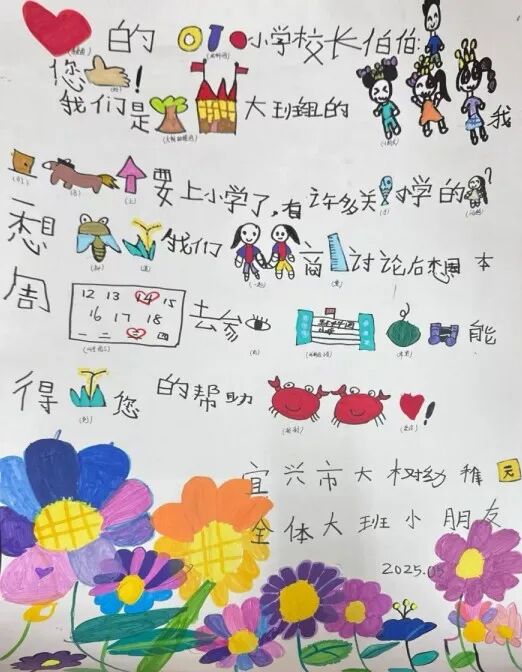 的 小学校长伯伯:
您 !
我们是 大班组的 我
要上小学了,有许多关 小学的 ?
想 我们 商 讨论后想本
周 去参 能
12 13 14 15
16 17 18
一 二 三 四
得 您 的帮助 !
宜兴市大树幼稚园
全体大班小朋友
2025.05